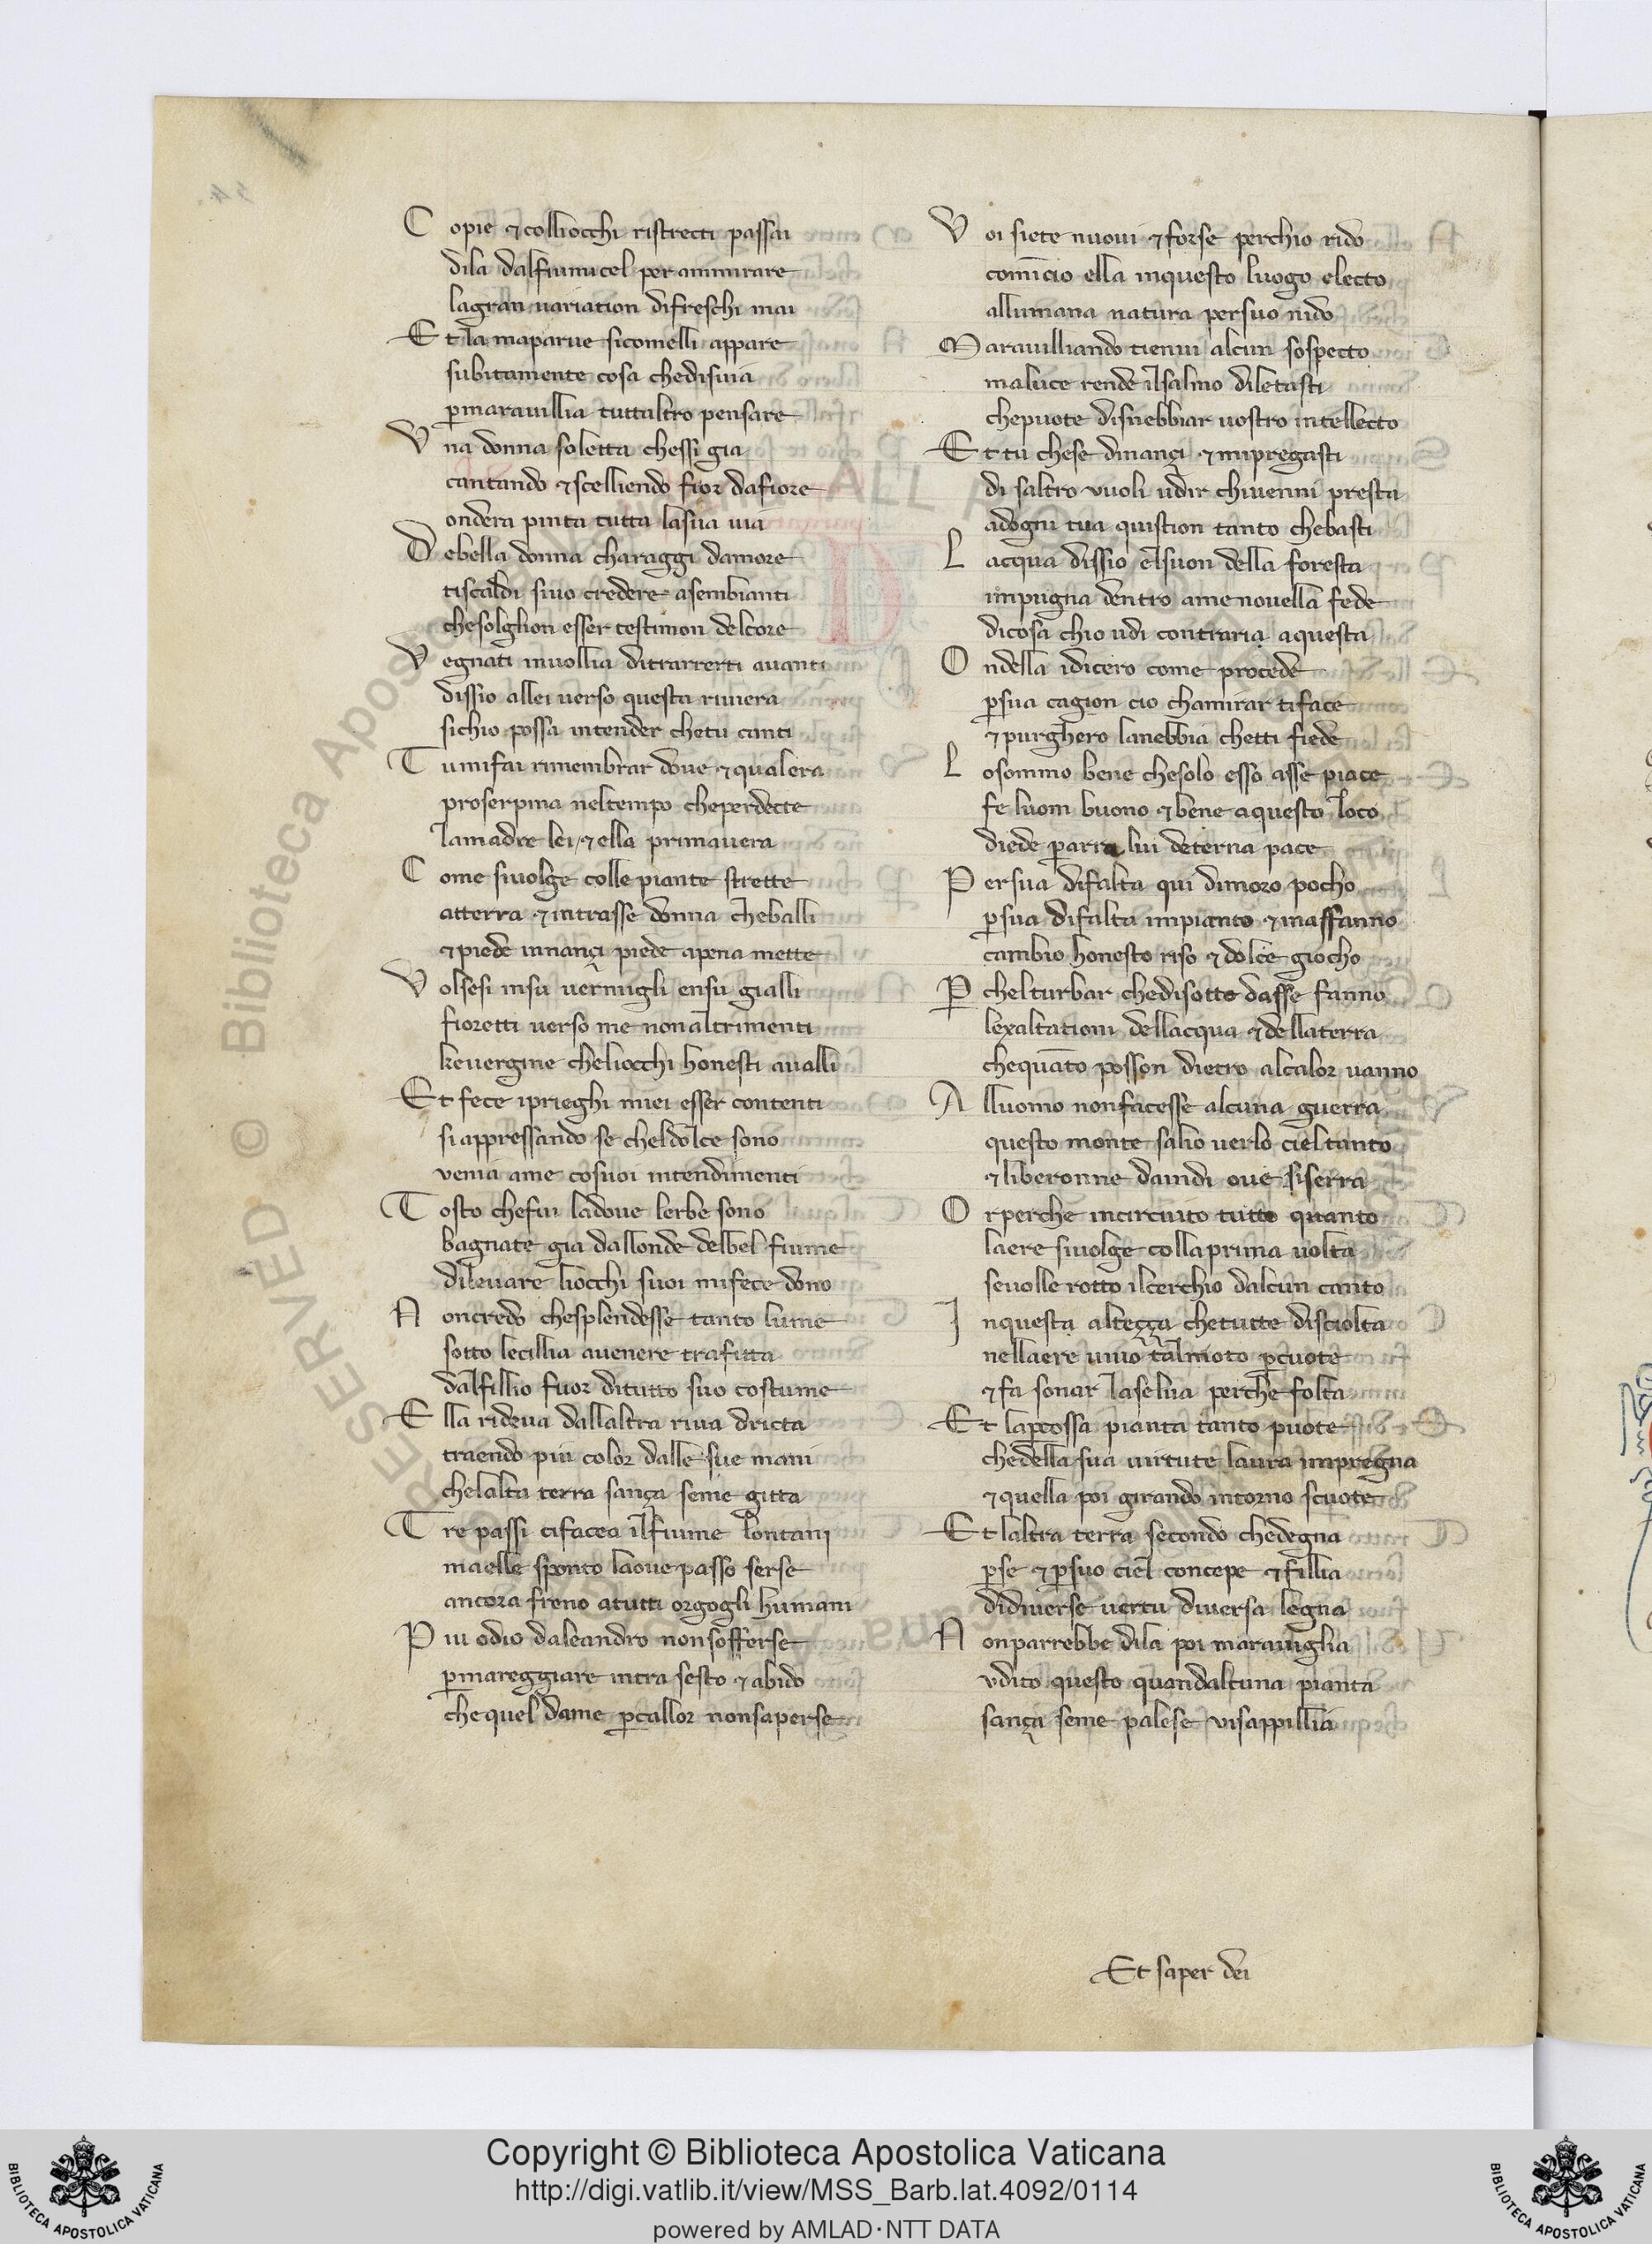 Copie ⁊ colliocchi ristrecti passai
dila dalfiumicel per ammirare
lagran uariation difreschi mai
Et la maparue sicomelli appare
subitamente cosa chedisuia
ꝑmarauillia tuttaltro pensare
Una donna soletta chessi gia
cantando ⁊ scelliendo fior dafiore
ondera pinta tutta lasua uia
Debella donna charaggi damore
tiscaldi siuo credere asembianti
chesolglion esser testimon delcore
Vegnati inuollia ditrarrerti auanti
dissio allei uerso questa riuiera
sichio possa intender chetu canti
Tumifai rimembrar doue ⁊ qualera
proserpina neltempo cheperdette
lamadre lei / ⁊ ella primauera
Come siuolge colle piante strette
atterra ⁊ intrasse donna cheballi
⁊ piede innançi piede apena mette
Volsesi insu uermigli ensu gialli
fioretti uerso me nonaltrimenti
keuergine cheliocchi honesti aualli
Et fece iprieghi miei esser contenti
si appressando se cheldolce sono
venia ame cosuoi intendimenti
Tosto chefui ladoue lerbe sono
bagnate gia dallonde delbel fiume
dileuare liocchi suoi mifece dono
Noncredo chesplendesse tanto lume
sotto lecillia auenere trafitta
dalfillio fuor ditutto suo costume
Ella rideua dallaltra riua dricta
traendo piu color dalle sue mani
chelalta terra sança seme gitta
Tre passi cifacea ilfiume lontani
maelle sponto laoue passo serse
ancora freno atutti orgogli humani
Piu odio daleandro nonsofferse
ꝑmareggiare intra sesto ⁊ abido
che quel dame ꝑcallor nonsaperse
Voi siete nuoui ⁊ forse perchio rido
comīcio ella inquesto luogo electo
allumana natura persuo nido
Marauilliando tienui alcun sospecto
maluce rende ilsalmo diletasti
chepuote disnebbiar uostro intellecto
Et tu chese dinançi ⁊ mipregasti
di saltro vuoli udir chiuenni presta
adogni tua quistion tanto chebasti
Lacqua dissio elsuon della foresta
impugna dentro ame nouella fede
dicosa chio udi contraria aquesta
Ondella idicero come procede
ꝑsua cagion cio chamirar tiface
⁊ purghero lanebbia chetti fiede
Losommo bene chesolo esso asse piace
fe luom buono ⁊ bene aquesto loco
diede ꝑarra lui deterna pace
Persua difalta qui dimoro pocho
ꝑsua difalta impianto ⁊ inaffanno
cambio honesto riso ⁊ dolce giocho
Ꝑchelturbar chedisotto dasse fanno
lexaltationi dellacqua ⁊ dellaterra
chequāto posson dietro alcalor uanno
Alluomo nonfacesse alcuna guerra
questo monte salio uerlo cieltanto
⁊ liberonne daindi oue siserra
Orperche incircuito tutto quanto
laere siuolge collaprima uolta
seuolle rotto ilcerchio dalcun canto
Inquesta alteçça chetutte disciolta
nellaere uiuo talmoto ꝑcuote
⁊ fa sonar laselua perche folta
Et laꝑcossa pianta tanto puote
chedella sua uirtute laura impregna
⁊ quella poi girando intorno scuote
Et laltra terra secondo chedegna
ꝑse ⁊ ꝑsuo ciel concepe ⁊ fillia
didiuerse uertu diuersa legna
Nonparrebbe dila poi marauiglia
vdito questo quandalcuna pianta
sança seme palese visappillia
Et saper dei
© Biblioteca Apostolica Vaticana
ALL
RESERVED
Copyright © Biblioteca Apostolica Vaticana
http://digi.vatlib.it/view/MSS_Barb.lat.4092/0114
powered by AMLAD·NTT DATA
BIBLIOTECA APOSTOLICA VATICANA
BIBLIOTECA APOSTOLICA VATICANA